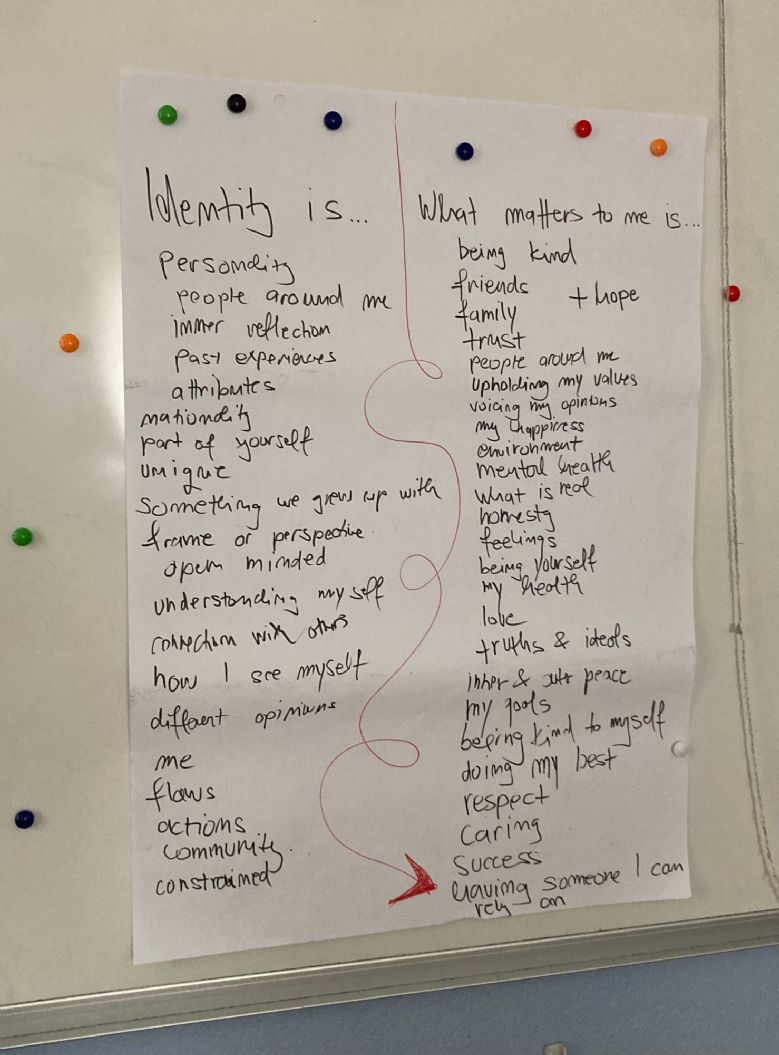 Identity is...
personality
people around me
inner reflection
past experiences
attributes
nationality
part of yourself
unique
something we grew up with
frame or perspective
open minded
understanding myself
connection with others
how I see myself
different opinions
me
flaws
actions
community
constrained
What matters to me is...
being kind
friends
+ hope
family
trust
people around me
upholding my values
voicing my opinions
my happiness
environment
mental health
what is real
honesty
feelings
being yourself
my health
love
truths & ideals
inner & outer peace
my goals
beeing kind to myself
doing my best
respect
caring
success
having someone I can
rely on